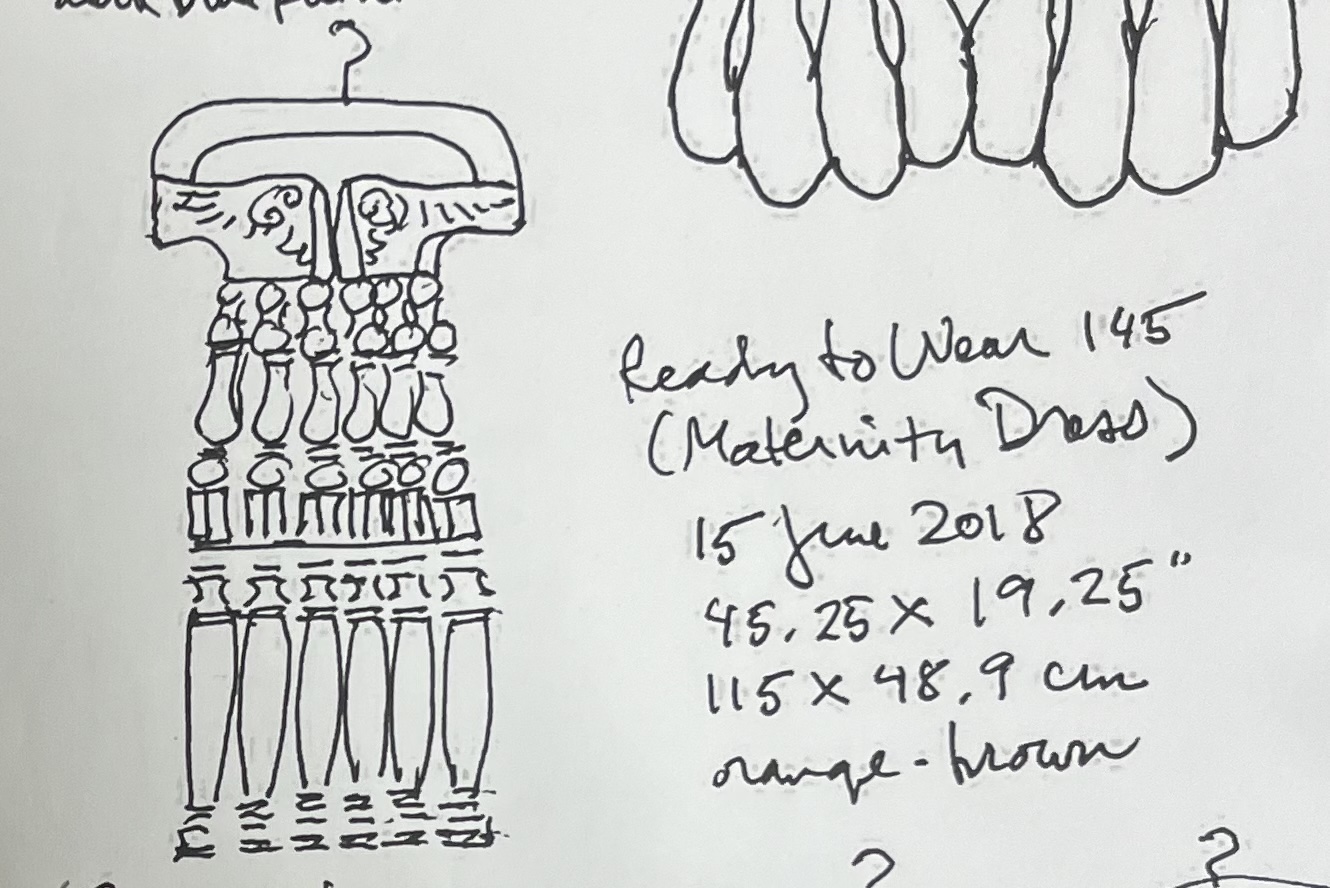 Ready to Wear 145
(Maternity Dress)
15 June 2018
45.25 x 19.25"
115 x 48.9 cm
orange-brown